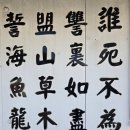 雖死不為
讐夷如盡
盟山草木
誓海魚龍